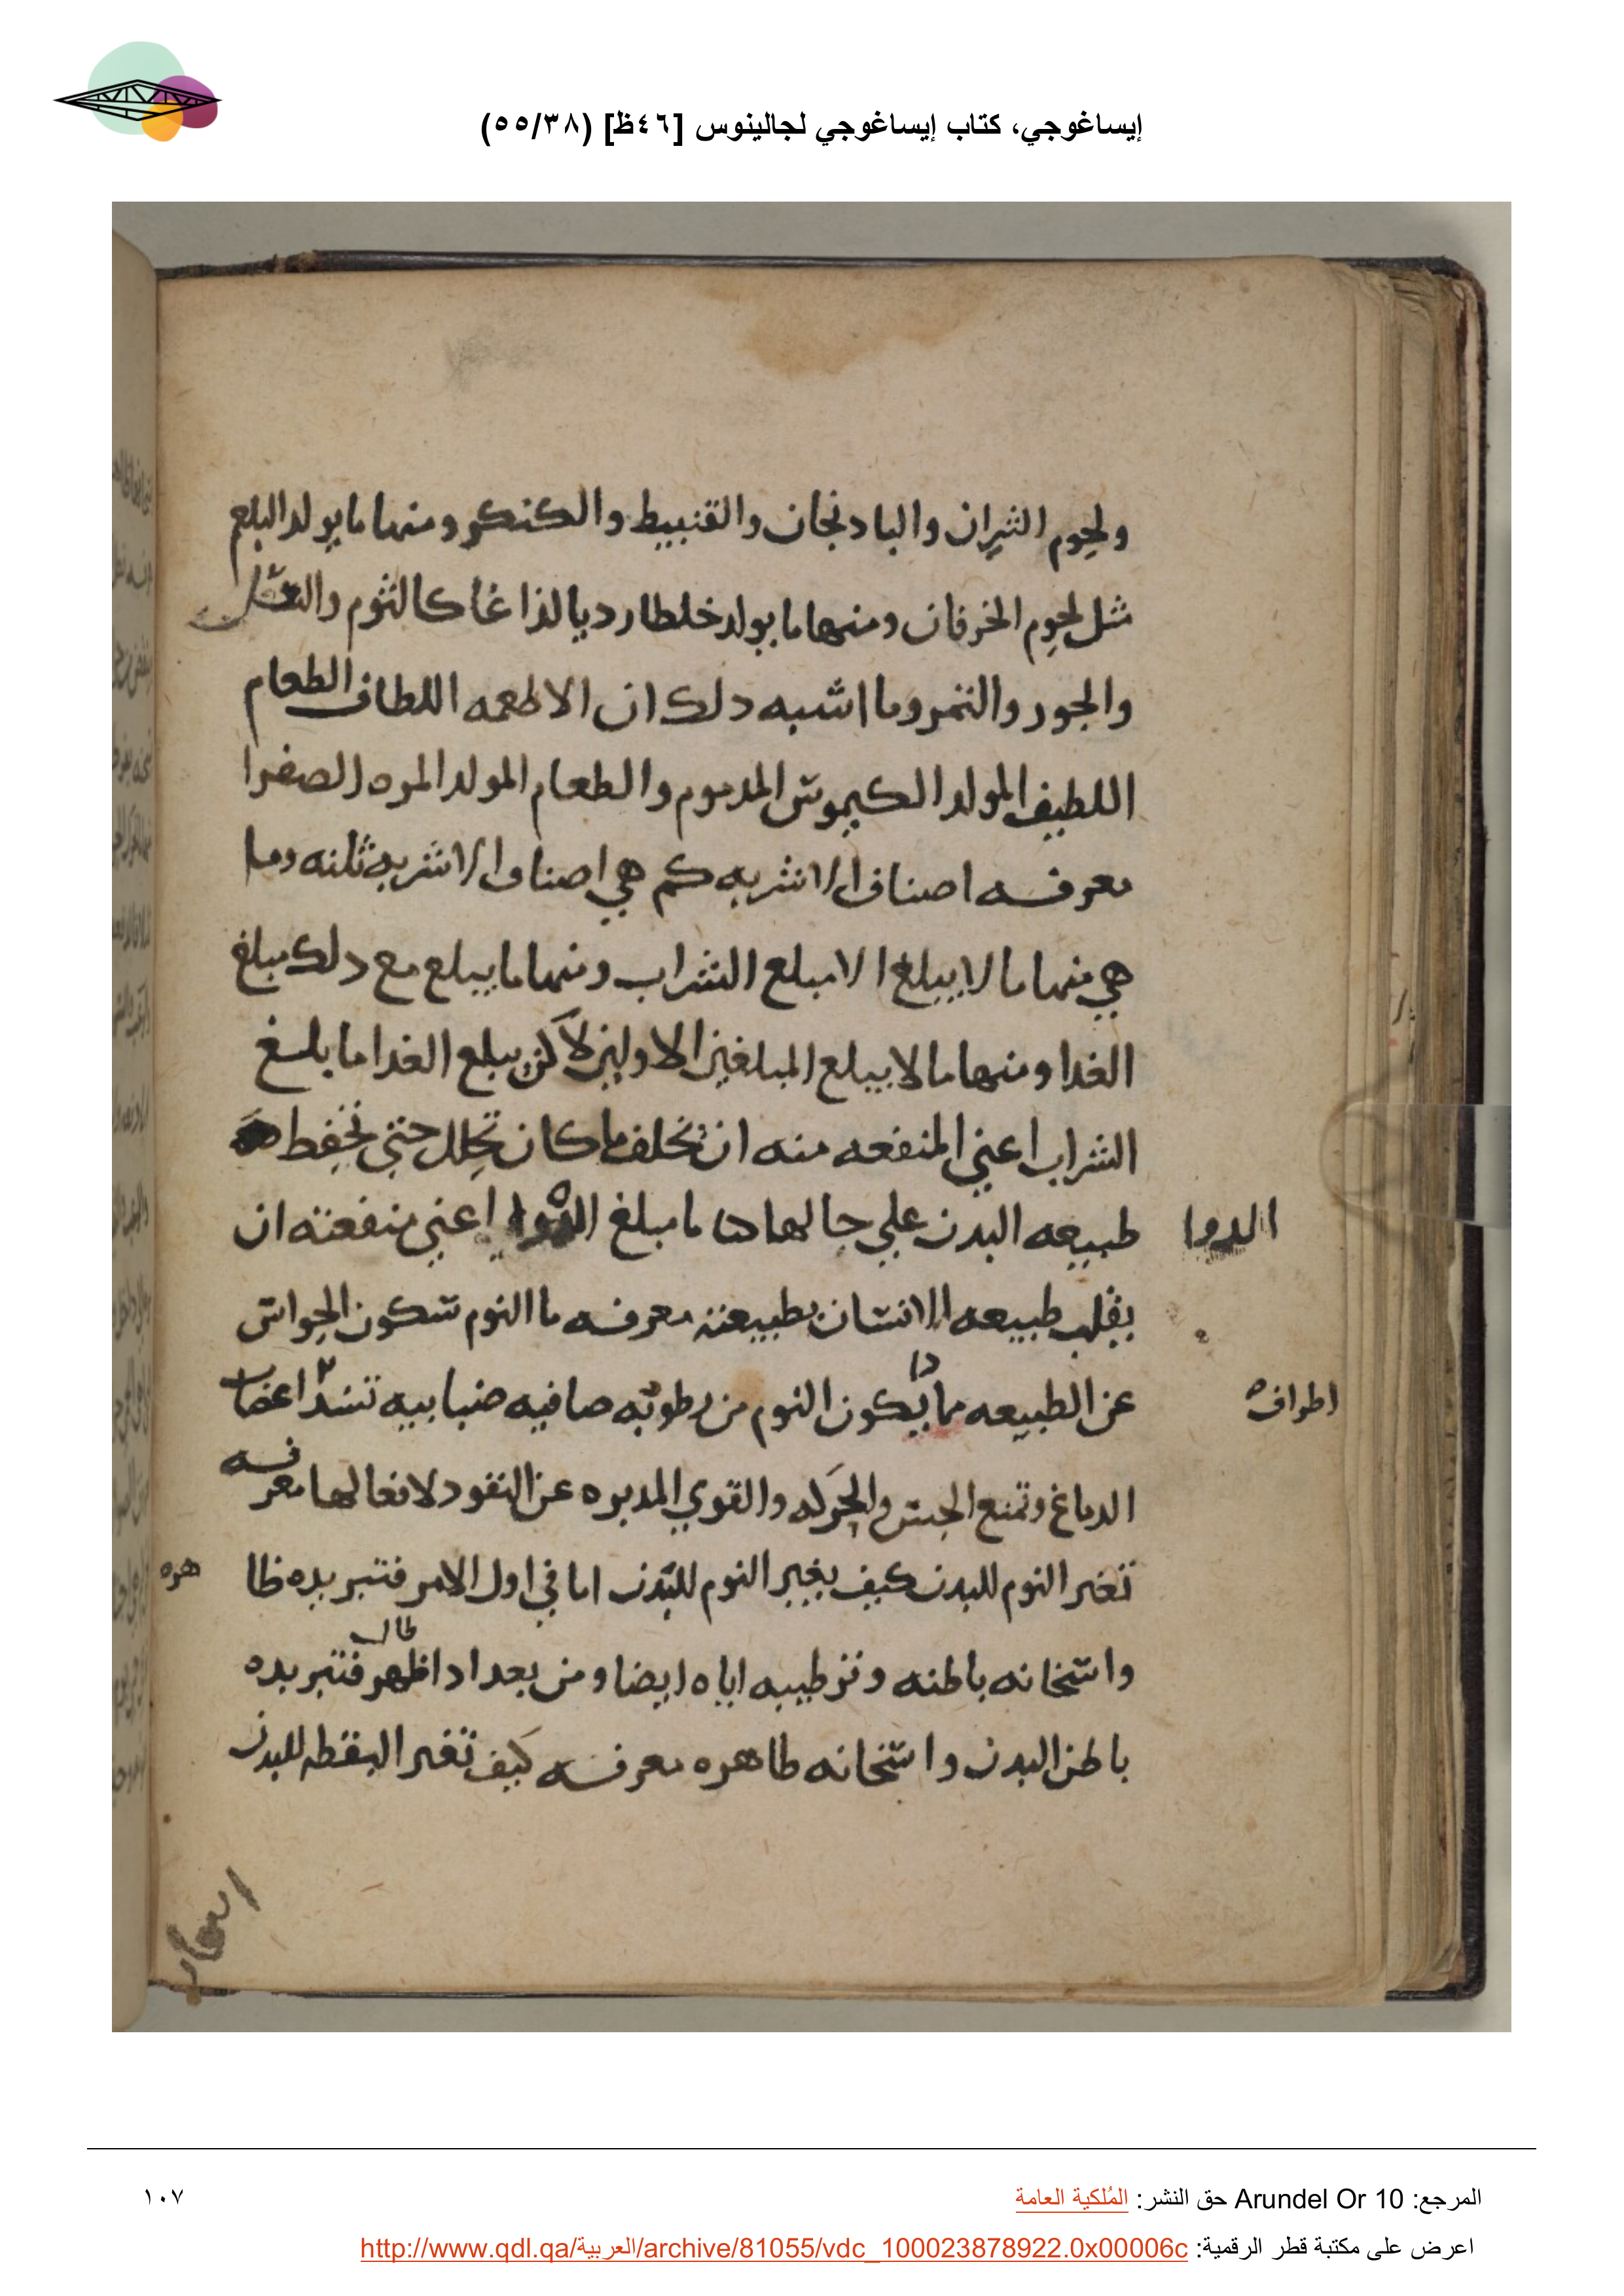 إيساغوجي، كتاب إيساغوجي لجالينوس [٤٦ظ] (٥٥/٣٨)
ولحوم الثيران والبادنجان والقنبيط والكنكر ومنها ما يولد البلغم
مثل لحوم الخرفان ومنها ما يولد خلطا رديا لذاعا كالثوم والبصل
والجور والتمر وما اشبه دلك ان الاطعمه اللطاف الطعام
اللطيف المولد الكيموس المدموم والطعام المولد المره الصفرا
معرفه اصناف الاشربه كم هي اصناف الاشربه ثلثه وما
هي منها ما لا يبلغ الا مبلع الشراب ومنها ما يبلع مع دلك مبلغ
الغدا ومنها ما لا يبلع المبلغين الاولين لاكن يبلع الغدا ما بلغ
الشراب اعني المنفعه منه ان تخلف ما كان تحلل حتي تحفط
طبيعه البدن علي حالها ما مبلغ الدوا اعني منفعته ان
الدوا
يقلب طبيعه الانسان بطبيعته معرفه ما النوم سكون الحواس
عن الطبيعه مما دا يكون النوم من رطوبه صافيه ضبابيه تسد اعضا
اطراف
الدماغ وتمنع الحس والحركه والقوي المدبره عن النفود لافعالها معرفه
تغير النوم للبدن كيف يغير النوم للبدن اما في اول الامر فتبريده ظا
هره
واسخانه باطنه وترطيبه اياه ايضا ومن بعد ادا ظهر فتبريده
طال
باطن البدن واسخانه طاهره معرفه كيف تغير اليقطه للبدن
المرجع: Arundel Or 10 حق النشر: المُلكية العامة
١٠٧
اعرض على مكتبة قطر الرقمية: http://www.qdl.qa/العربية/archive/81055/vdc_100023878922.0x00006c